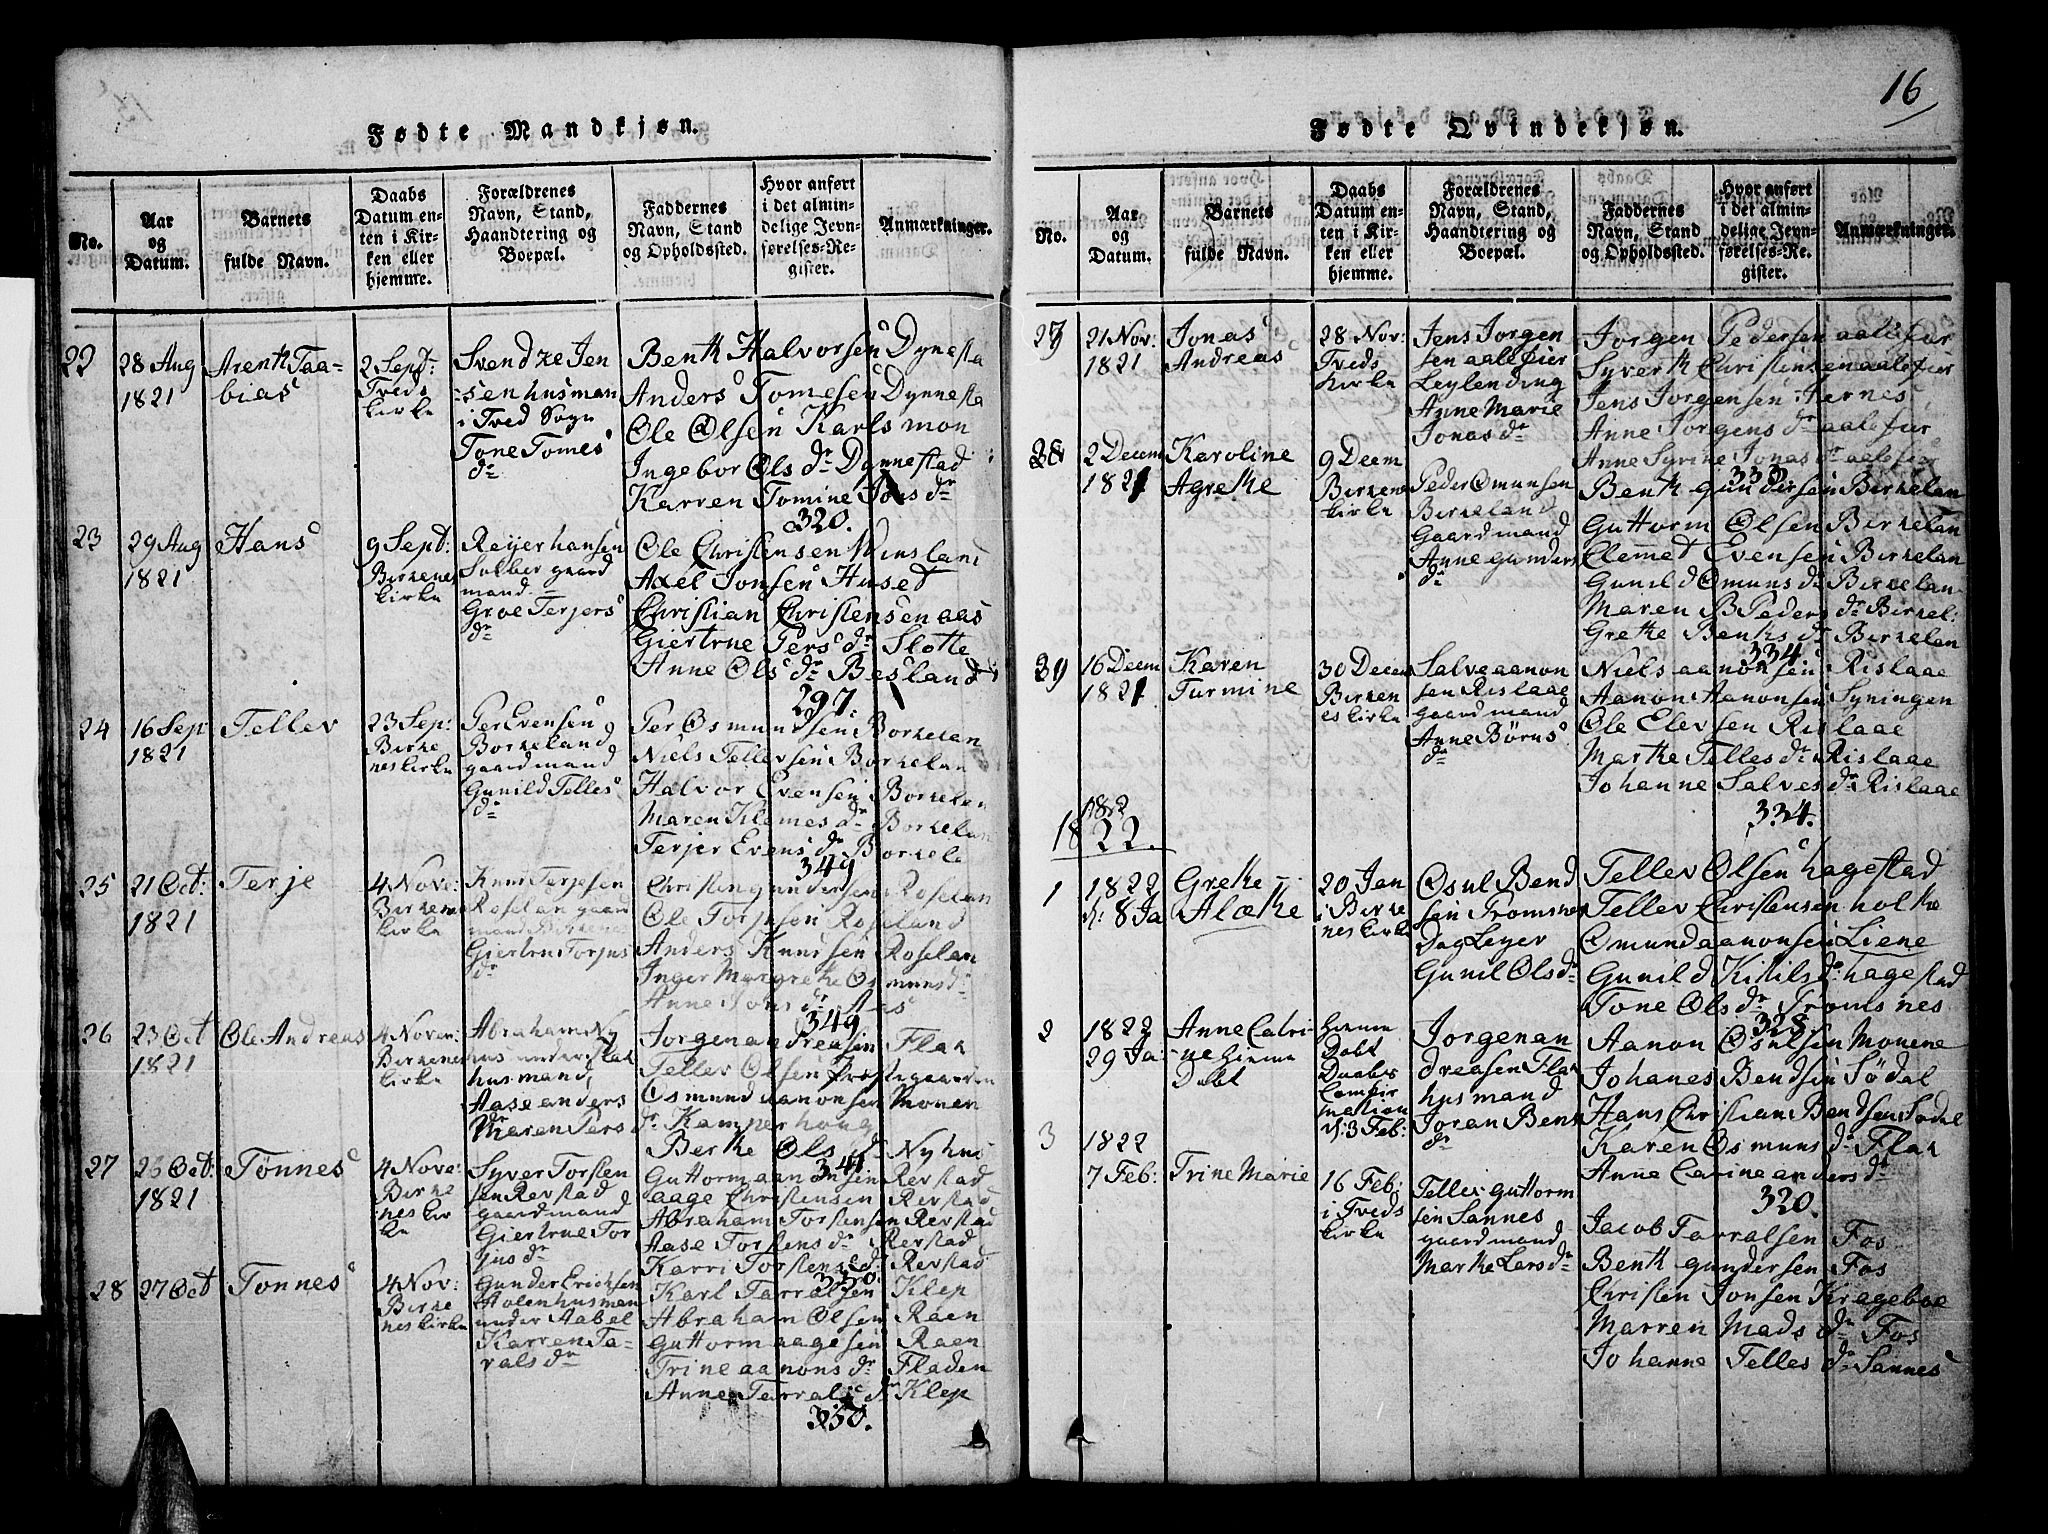 16
Fødte Mandkjøn.
No.
Aar og Datum.
Barnets fulde Navn.
Daabs Datum enten i Kirken eller hjemme.
Forældrenes Navn, Stand, Haandtering og Boepæl.
Faddernes Navn, Stand og Opholdssted.
Hvor anført i det almindelige Jevnførelses-Register.
Anmærkninger.
22
28 Aug
1821
Arent Taa-
bias
2 Sept:
Tveds
kirke
Svendke Jen
sen husman
i Tved Sogn
Tone Tomes
dr
Benth Halvorsen Dynesta
Anders Tomesen Dynnesta
Ole Olsen Karlsmon
Ingebor Ols dr Dynnestad
Karren Tomine Jons dr
320.
23
29 Aug
1821
Hans
9 Sept:
Birkenes
kirke
Reijer hansen
gaard
mand
Groe Terjers
dr
Ole Christensen Winsland
Axel Jonsen Huset
Christian Christensen aas
Giertrue Pers dr Slotte
Anne Ols dr Besland
297.
24
16 Sep
1821
Tellev
23 Sep:
Birke
nes kirke
Per Evensen
Borkeland
gaardmand
Gunild Telles
dr
Per Osmundsen Borkelan
Niels Tellevsen Borkelan
Halvor Evensen Borkelan
Maren Klemes dr Borkelan
Terjer Evens dr Borkela
349
25
21 Oct:
1821
Terje
4 Nove:
Birkene
kirke
Knut Terjesen
Roselan gaard
mand Birkenes
Giertru Torjus
dr
Christen gundersen Roselan
Ole Torjusen Roseland
Anders Knudsen Roselan
Inger Margrethe Osmunsd
Anne Jons dr Aas
349
26
23 Oct
1821
Ole Andreas
4 Nover:
Birkenes
kirke
Abraham Ny
hus under Flak
husmand,
Aase anders
dr
Jorgen Andreasen Flak
Tellev Olsen Prestegaarden
Osmund aanonsen Monen
Maren Pers dr Kamperhoug
Berthe Ols dr Nyhus
341
27
26 Oct:
1821
Tønnes
4 Nove:
Birke
nes kir
ke
Syver Torsten
sen Revstad
gaardmand
Giertrue Tor
jus dr
Guttorm aanonsen Revstad
aage Christensen Revstad
Abraham Torstensen Revstad
Aase Torstens dr Revstad
Karri Torstens dr Revstad
350
28
27 Oct
Tønnes
4 Nov:
Birke
nes kirke
Gunder Erichsen
Holen husman
under Aabel
Karren Ta-
rals dr
Karl Tarralsen Klep
Abraham Olsen Raen
Guttorm aagesen Raen
Trine aanons dr Fladen
Anne Tarrals dr Klep
350.
Fødte Qvindekjøn.
No.
Aar og Datum.
Barnets fulde Navn.
Daabs Datum enten i Kirken eller hjemme.
Forældrenes Navn, Stand, Haandtering og Boepæl.
Faddernes Navn, Stand og Opholdssted.
Hvor anført i det almindelige Jevnførelses-Register.
Anmærkninger.
21 Nov:
1821
Jonas
Andreas
28 Nov:
Tveds
kirke
Jens Jorgen
sen aalefier
Leylending
Anne Marie
Jonas dr
Jorgen Pedersen aalefier
Syvert Christensen aalefier
Jens Jorgensen Aernes
Anne Jorgens dr aalefier
Anne Syrine Jonas dr aalefier
333
2 Decem
1821
Karoline
Agrethe
9 Decem
Birkenes
kirke
Peder Omunsen
Birkeland
Gaardmand
Anne gunders
dr
Benth gundersen Birkelan
Guttorm Olsen Birkelan
Clemet Evensen Birkelan
Gunild Omuns dr Birkelan
Maren B Peders dr Birkel:
Grethe Benths dr Birkelan
334
39
16 Decem
1821
Karen
Turmine
30 Decem
Birken
es kirke
Salve aanon
sen Rislaae
gaardmand
Anne Børus
dr
Niels aanonsen Rislaae
Aanon Aanonsen Syningen
Ole Elevsen Rislaae
Marthe Telles dr Rislaae
Johanne Salves dr Rislaae
334.
1822
1822.
1
1822
d: 8 Ja
Grethe
Alæthe
20 Jan
i Birke
nes kirke
Osul Bend
sen Tromsnes
Dagleyer
Gunil Ols dr
Tellev Olsen hagestad
Tellev Christensen holthe
Omund aanonsen Liene
Gunild Kitils dr hagestad
Tone Ols dr Tromsnes
328.
2
1822
29 Ja
Anne Catri-
ne Hiemme
Døbt
Hiemme
Døbt
Daabs
Comfir
mation
d: 3 Feb:
Jorgen An
dreasen Flak
husmand
Joran Bens
dr
Aanon Osulsen Monene
Johanes Bendsen Södal
Hans Christian Bendsen Södal
Karen Osmuns dr Flak
Anne Carine anders dr
320.
3
1822
7 Feb:
Trine Marie
16 Feb:
i Tveds
kirke
Tellev guttorm
sen Sannes
gaardmand
Marthe Lars dr
Jacob Tarralsen Fos
Benth gundersen Fos
Christen Jonsen Krageboe
Marren Mads dr Fos
Johanne Telles dr Sannes